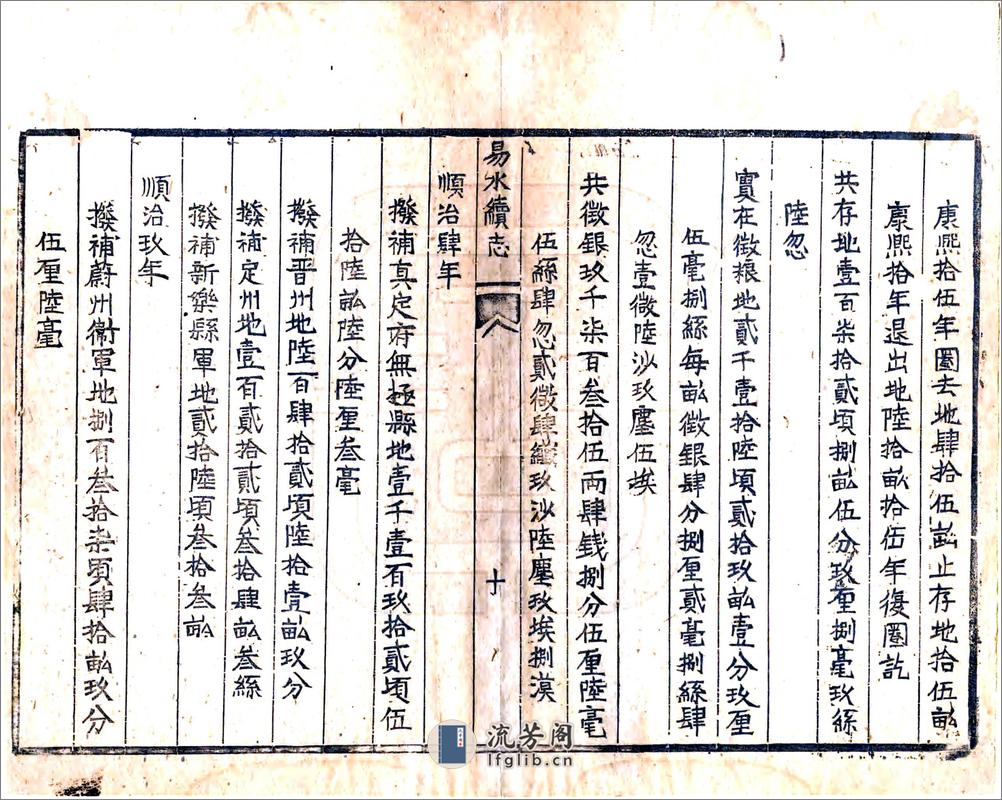 康熙拾伍年圈去地肆拾伍畝止存地拾伍畝
康熙拾年退出地陸拾畝拾伍年復圈訖
共存地壹百柒拾貳頃捌畝伍分玖厘捌毫玖絲
陸忽
實在徵粮地貳千壹拾陸頃貳拾玖畝壹分玖厘
伍毫捌絲每畝徵銀肆分捌厘貳毫捌絲肆
忽壹微陸沙玖塵伍埃
共徵銀玖千柒百叁拾伍兩肆錢捌分伍厘陸毫
伍絲肆忽貳微肆纖玖沙陸塵玖埃捌漠
易水續志
十
順治肆年
撥補真定府無極縣地壹千壹百玖拾貳頃伍
拾陸畝陸分陸厘叁毫
撥補晋州地陸百肆拾貳頃陸拾壹畝玖分
撥補定州地壹百貳拾貳頃叁拾肆畝叁絲
撥補新樂縣軍地貳拾陸頃叁拾叁畝
順治玖年
撥補蔚州衞軍地捌百叁拾柒頃肆拾畝玖分
伍厘陸毫
流芳阁
lfglib.cn